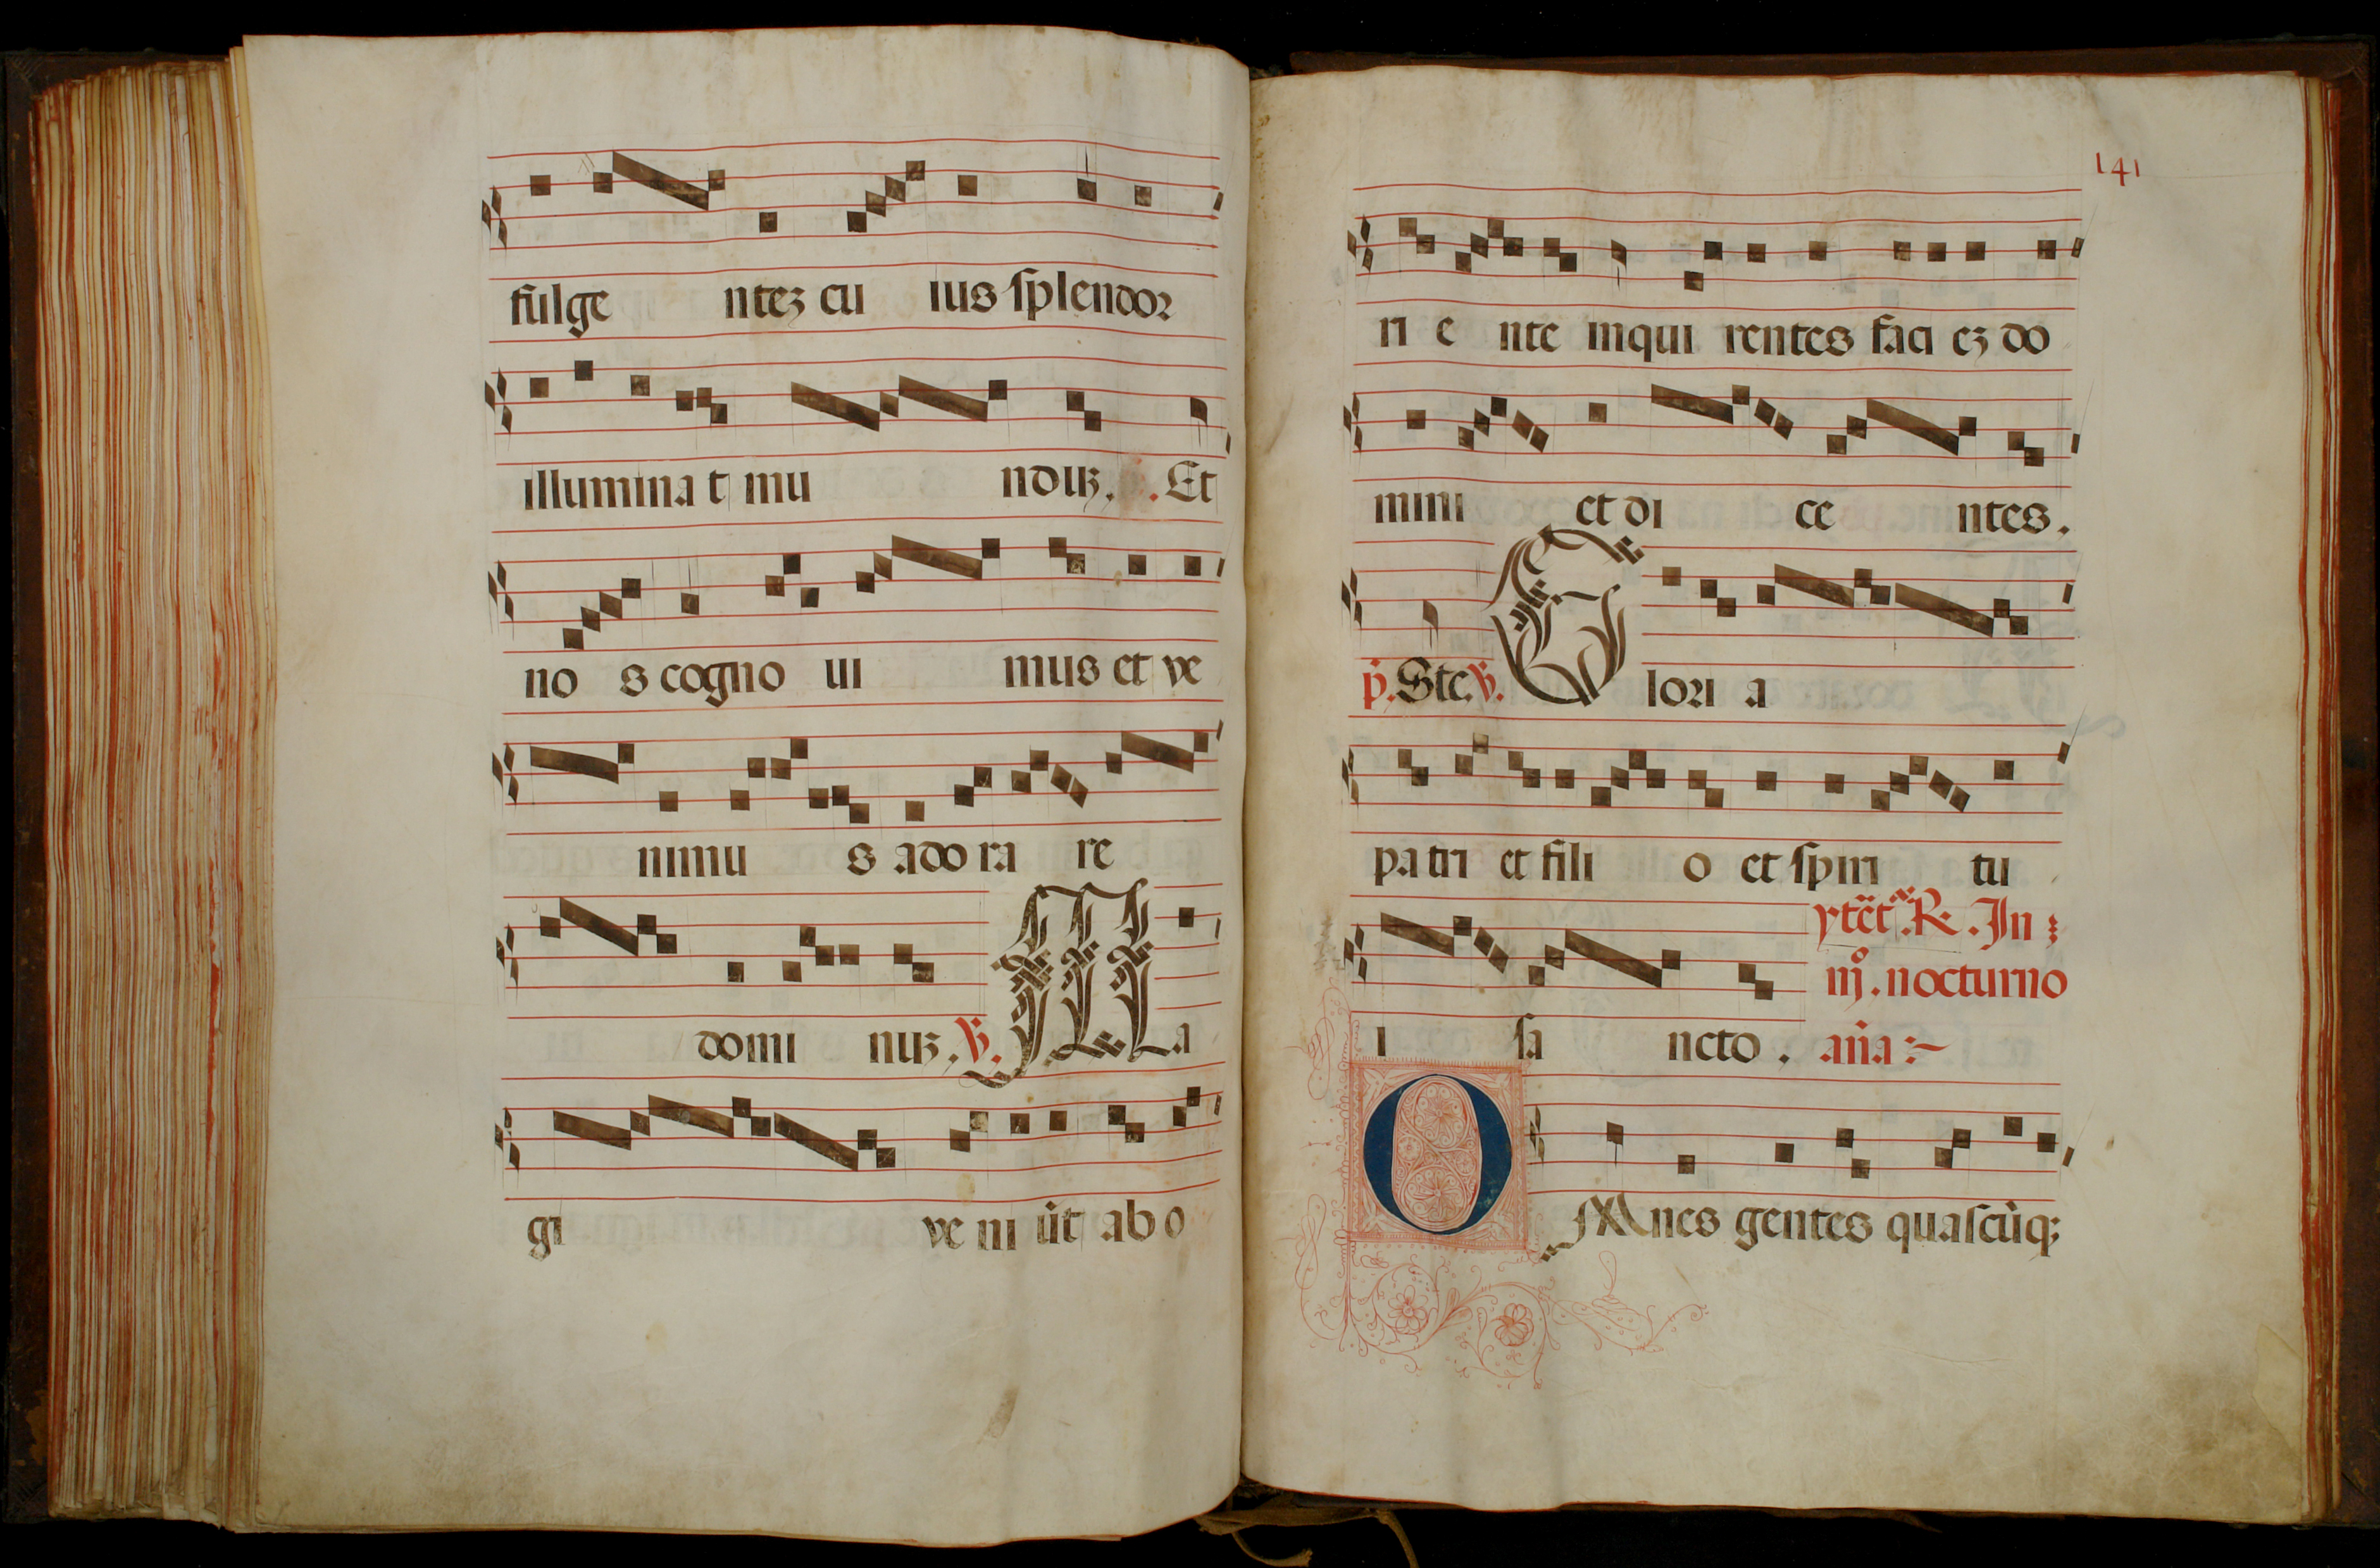 fulge ntez cu ius splendor
illumina t mu nduz. Et
no s cogno ui mus et ve
nimu s ado ra re
domi nuz. ℣. Ma
gi ve ni ūt ab o
141
ri e nte inqui rentes faci ez do
mini et di ce ntes.
p̄. Ste. ℣. Glori a
pa tri et fili o et spiri tu
ytēt. R. In
iijº. nocturno
i sa ncto. añа:~
OMnes gentes quascūq;